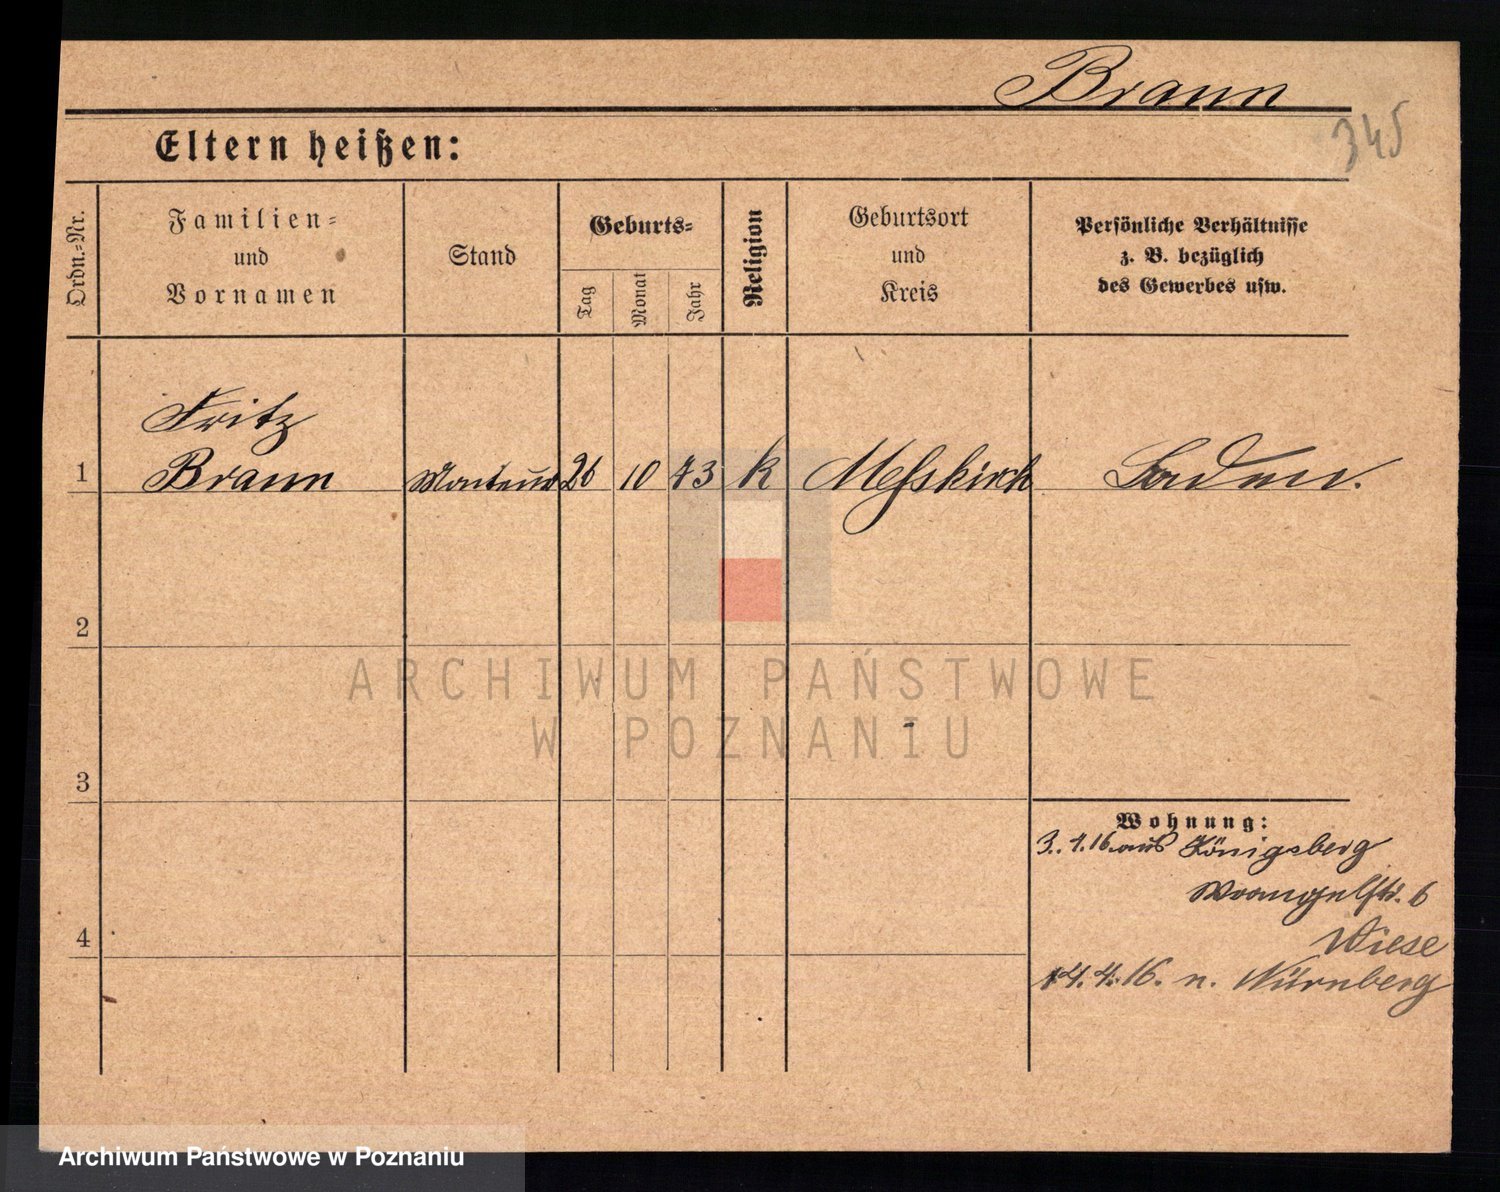 Braun
345
Eltern heißen:
Ordn.=Nr.
Familien=
und
Vornamen
Stand
Geburts=
Tag
Monat
Jahr
Religion
Geburtsort
und
Kreis
Persönliche Verhältnisse
z. B. bezüglich
des Gewerbes usw.
Fritz
1 Braun Monteur 26 10 73 k Messkirch Baden.
2
3
Wohnung:
3. 4. 16. aus Königsberg
Wrangelstr. 6
Wiese
4
14. 4. 16. n. Nürnberg
ARCHIWUM PAŃSTWOWE
W POZNANIU
Archiwum Państwowe w Poznaniu